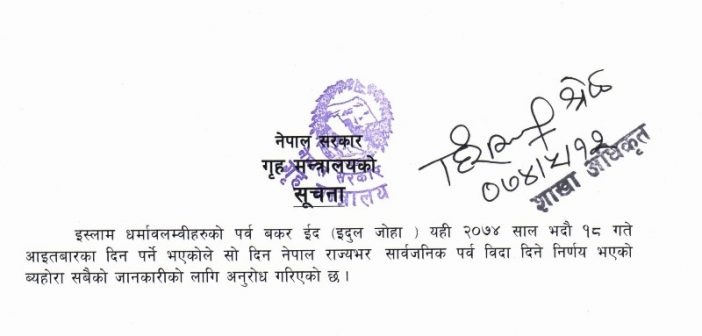 नेपाल सरकार
गृह मन्त्रालयको
सूचना
श्रेष्ठ
०७४।५।१२
शाखा अधिकृत
इस्लाम धर्मावलम्वीहरुको पर्व बकर ईद (इदुल जोहा ) यही २०७४ साल भदौ १८ गते
आइतबारका दिन पर्ने भएकोले सो दिन नेपाल राज्यभर सार्वजनिक पर्व विदा दिने निर्णय भएको
ब्यहोरा सबैको जानकारीको लागि अनुरोध गरिएको छ।